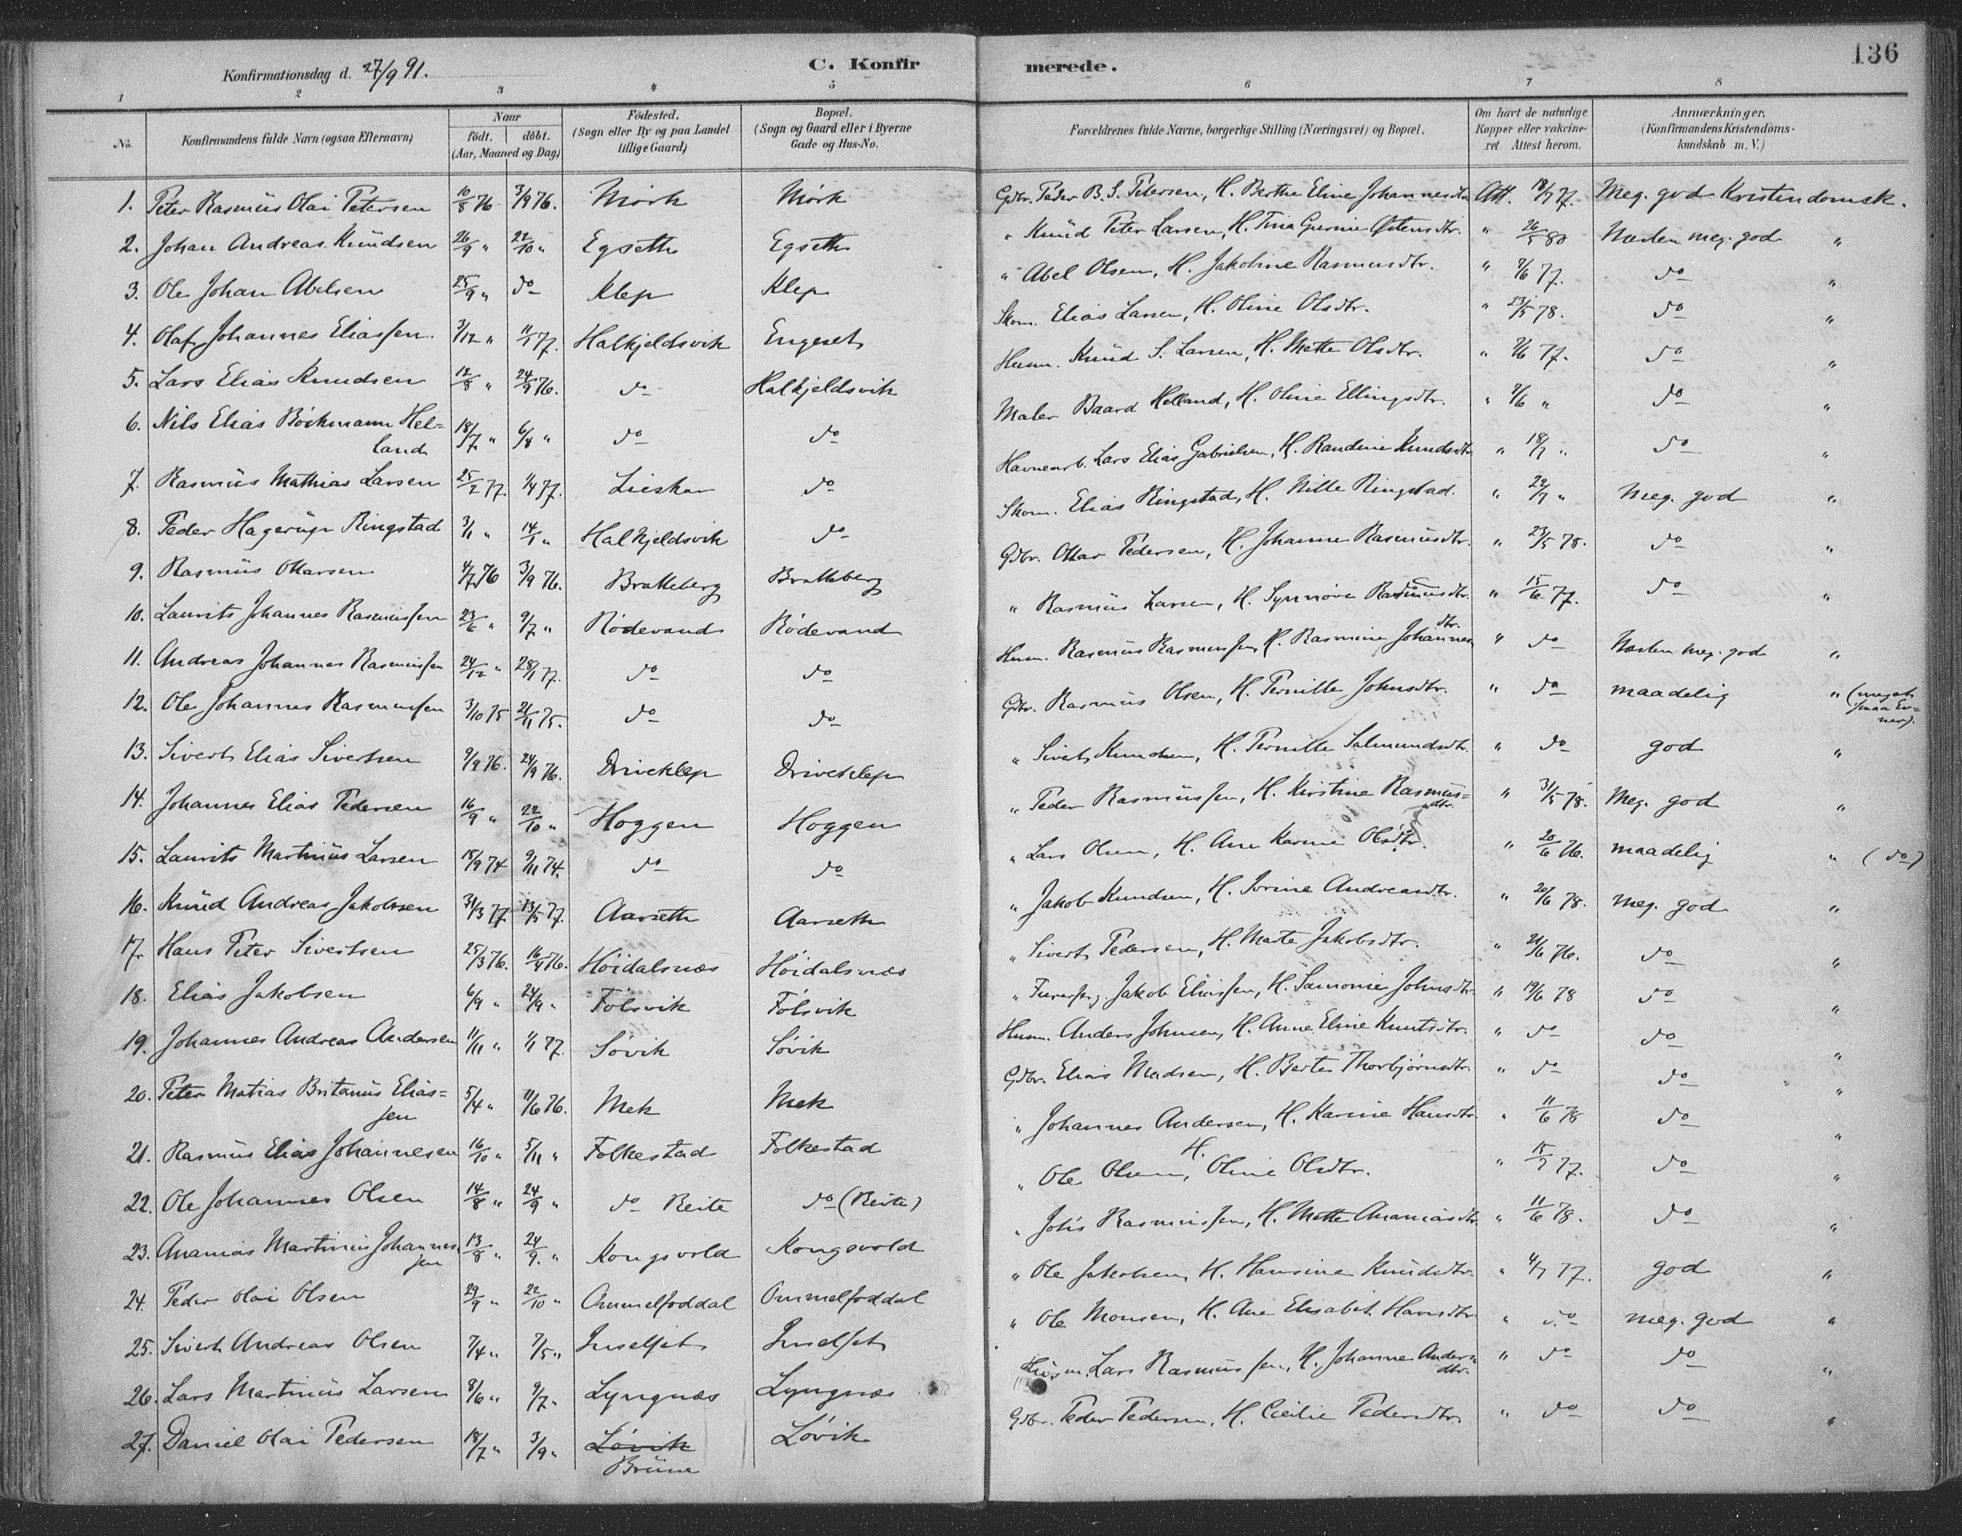 136
Konfirmationsdag d. 27/9 91.
C. Konfirmerede.
1 2 3 4 5 6 7 8
No. Konfirmandens fulde Navn (ogsaa Efternavn) Naar födt. döbt. (Aar, Maaned og Dag) Födested. (Sogn eller By og paa Landet tillige Gaard) Bopæl. (Sogn og Gaard eller i Byerne Gade og Hus-No. Forældrenes fulde Navne, borgerlige Stilling (Næringsvei) og Bopæl. Om havt de naturlige Kopper eller vakcineret Attest herom. Anmærkninger, (Konfirmandens Kristendomskundskab m. V.)
1. Peter Rasmus Olai Petersen 10/8 76 3/9 76. Mörk Mörk Gdbr. Peder B. S. Petersen, H. Berthe Eline Johannesdtr. Att. 18/7 77. Meg. god Kristendomsk.
2. Johan Andreas Knudsen 26/9 " 22/10 " Egseth Egseth " Knud Peter Larsen, H. Tina Gurine Østensdtr. " 26/5 80 Næsten meg. god "
3. Ole Johan Abelsen 25/9 " do Klep Klep " Abel Olsen, H. Jakobine Rasmusdtr. " 7/6 77. do "
4. Olaf Johannes Eliassen 3/12 " 11/1 77. Halkjeldsvik Engeset Skom. Elias Larsen, H. Oline Olsdtr. " 23/5 78. do "
5. Lars Elias Knudsen 12/8 " 24/9 76. do Halkjeldsvik Husm. Knud S. Larsen, H. Mette Olsdtr. " 7/6 77. do "
6. Nils Elias Böckmann Hel-
land 18/7 " 6/8 " do do Maler Baard Helland, H. Oline Ellingsdtr. " 7/6 " do "
7. Rasmus Mathias Larsen 25/2 77. 1/4 77. Lieskar do Havnearb. Lars Elias Gabrielsen, H. Randine Knudsdtr. " 18/7 " do "
8. Peder Hagerup Ringstad 3/1 " 14/1 " Halkjeldsvik do Skom. Elias Ringstad, H. Nille Ringstad. " 24/7 " Meg. god "
9. Rasmus Ottarsen 4/7 76 3/9 76. Bratteberg Bratteberg Gdbr. Ottar Pedersen, H. Johanne Rasmusdtr. " 23/5 78. do "
10. Laurits Johannes Rasmussen 23/6 " 9/7 " Rödevand Rödevand " Rasmus Larsen, H. Synnöve Rasmusdtr. " 15/6 77. do "
11. Andreas Johannes Rasmussen 24/12 " 28/1 77. do do Husm. Rasmus Rasmussen, H. Rasmine Johannesdtr. " do Næsten meg. god "
12. Ole Johannes Rasmussen 3/10 75 21/11 75. do do Gdbr. Rasmus Olsen, H. Pernille Johnsdtr. " do maadelig " (meget smaa Evner).
13. Sivert Elias Sivertsen 9/9 76. 24/9 76. Driveklep Driveklep " Sivert Knudsen, H. Pernille Salmundsdtr. " do god "
14. Johannes Elias Pedersen 16/9 " 22/10 " Hoggen Hoggen " Peder Rasmussen, H. Kirstine Rasmus-
dtr. " 31/5 78. Meg. god "
15. Laurits Martinus Larsen 18/9 74 9/11 74. do do " Lars Olsen, H. Ane Karine Olsdtr. " 20/6 76. maadelig " (do)
16. Knud Andreas Jakobsen 31/3 77. 13/5 77. Aarseth Aarseth " Jakob Knudsen, H. Jorine Andreasdtr. " 20/6 78. meg. god "
17. Hans Peter Sivertsen 25/3 76. 16/4 76. Höidalsnæs Höidalsnæs " Sivert Pedersen, H. Marte Jakobsdtr. " 21/6 76. do "
18. Elias Jakobsen 6/9 " 24/9 " Fölsvik Fölsvik " Jakob Eliassen, H. Samonie Johnsdtr. " 19/6 78 do "
19. Johannes Andreas Andersen 11/11 " 1/1 77. Sövik Sövik Husm. Anders Johnsen, H. Anne Eline Knutsdtr. " do do "
20. Peter Matias Britanus Elias-
sen 5/4 " 11/6 76. Mek Mek Gdbr. Elias Madsen, H. Berte Thorbjörnsdtr. " do do "
21. Rasmus Elias Johannesen 16/10 " 5/11 " Folkestad Folkestad " Johannes Andersen, H. Karine Hansdtr. " 11/6 78 do "
22. Ole Johannes Olsen 14/8 " 24/9 " do Reite do (Reite) " Ole Olsen, H. Oline Olsdtr. " 15/7 77. do "
23. Ananias Martinus Johannes-
sen 13/8 " 24/9. " Kongsvold Kongsvold " Johs Rasmussen, H. Mette Ananiasdtr. " 11/6 78. do "
24. Peder Olai Olsen 29/9 " 22/10 " Ommelfoddal Ommelfoddal " Ole Jakobsen, H. Hansine Knudsdtr. " 4/7 77. god "
25. Sivert Andreas Olsen 7/4 " 7/5 " Inselset Inselset " Ole Monsen, H. Ane Elisabet Hansdtr. " do meg. god "
26. Lars Martinus Larsen 8/6 " 9/7 " Lyngnæs Lyngnæs Husm. Lars Rasmussen, H. Johanne Anders-
dtr. " do do "
27. Daniel Olai Pedersen 18/7 " 3/9 " Lövik Brune Lövik Gdbr. Peder Pedersen, H. Cecilie Pedersdtr. " do do "